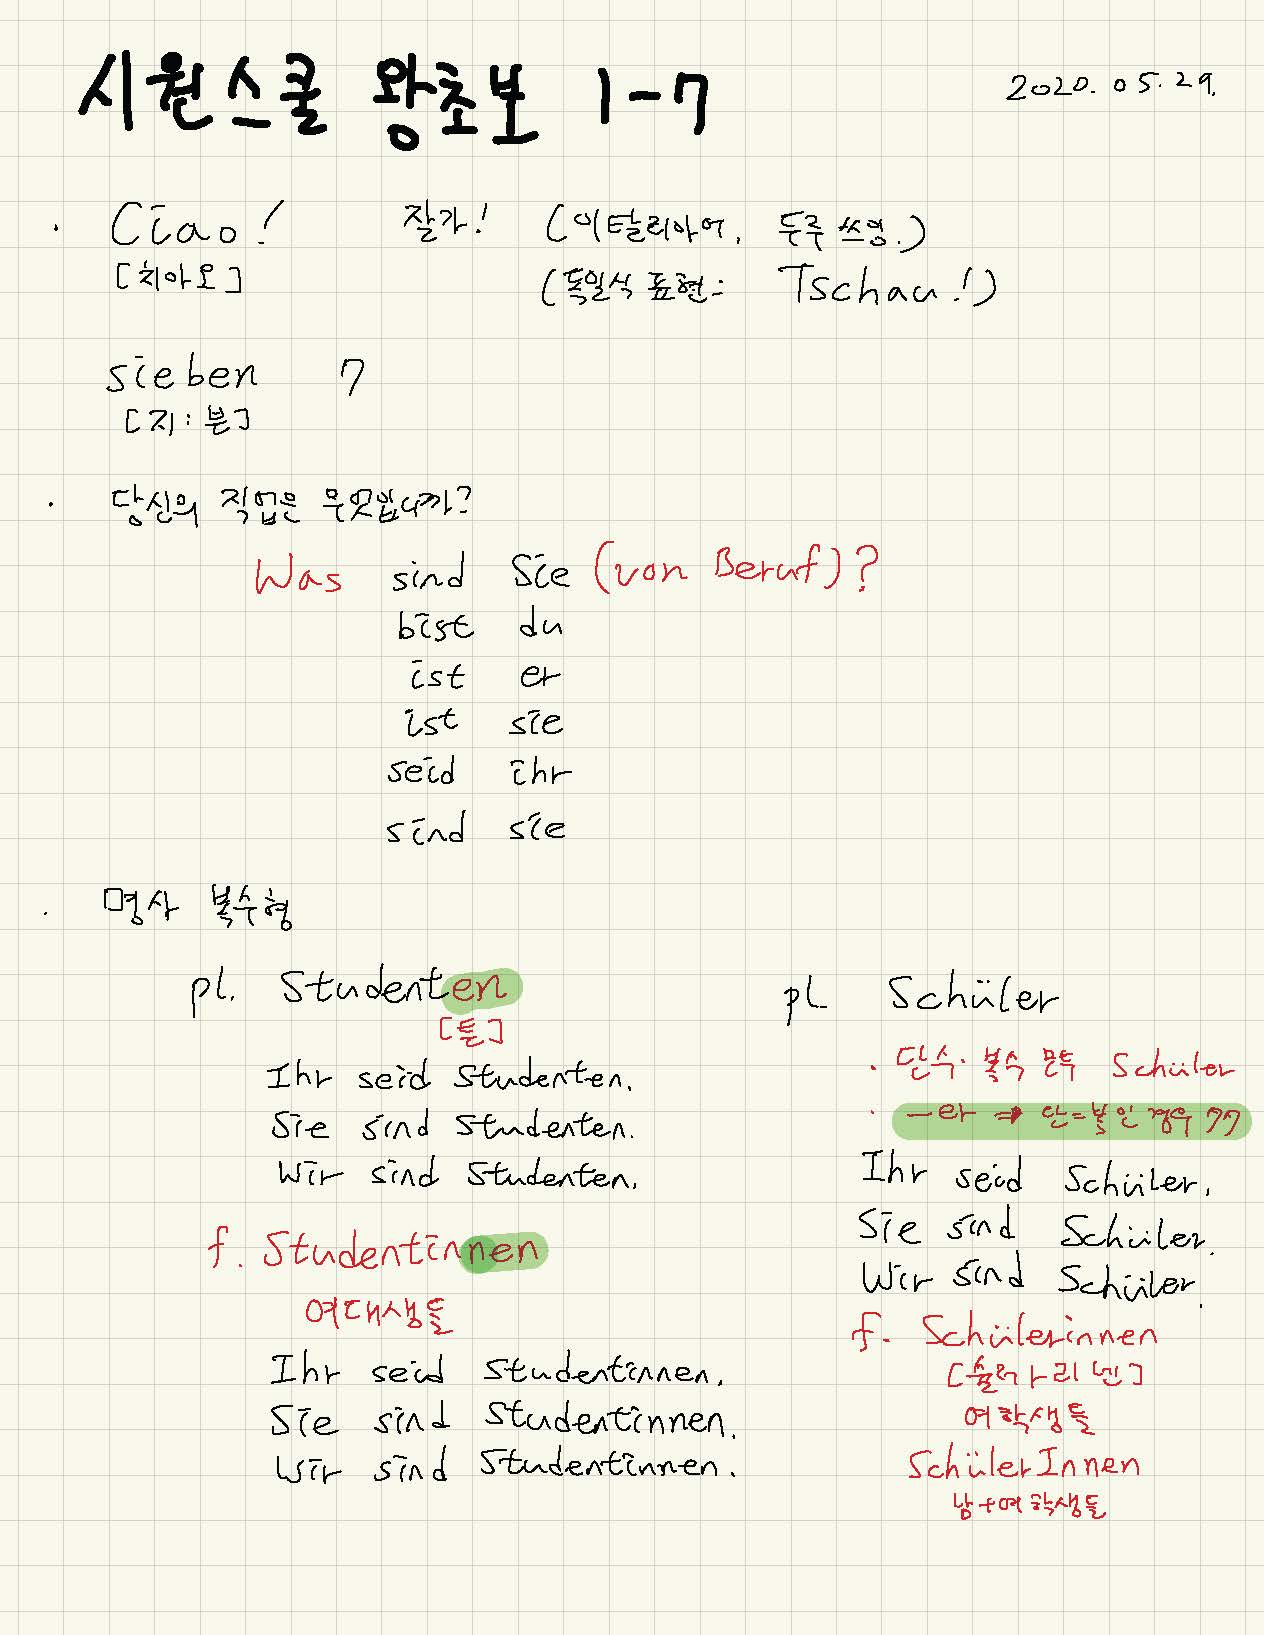 시원스쿨 왕초보 1-7
2020.05.29.
· Ciao! 잘가! (이탈리아어. 두루 쓰임.)
[치아오] (독일식 표현: Tschau!)
sieben 7
[지:븐]
· 당신의 직업은 무엇입니까?
Was sind Sie (von Beruf)?
bist du
ist er
ist sie
seid ihr
sind sie
· 명사 복수형
pl. Studenten
[튼]
Ihr seid Studenten.
Sie sind Studenten.
Wir sind Studenten.
f. Studentinnen
여대생들
Ihr seid Studentinnen.
Sie sind Studentinnen.
Wir sind Studentinnen.
pl Schüler
· 단수·복수 모두 Schüler
· -er ⇒ 단=복인 경우 많음
Ihr seid Schüler.
Sie sind Schüler.
Wir sind Schüler.
f. Schülerinnen
[쉴러리넨]
여학생들
SchülerInnen
남+여학생들